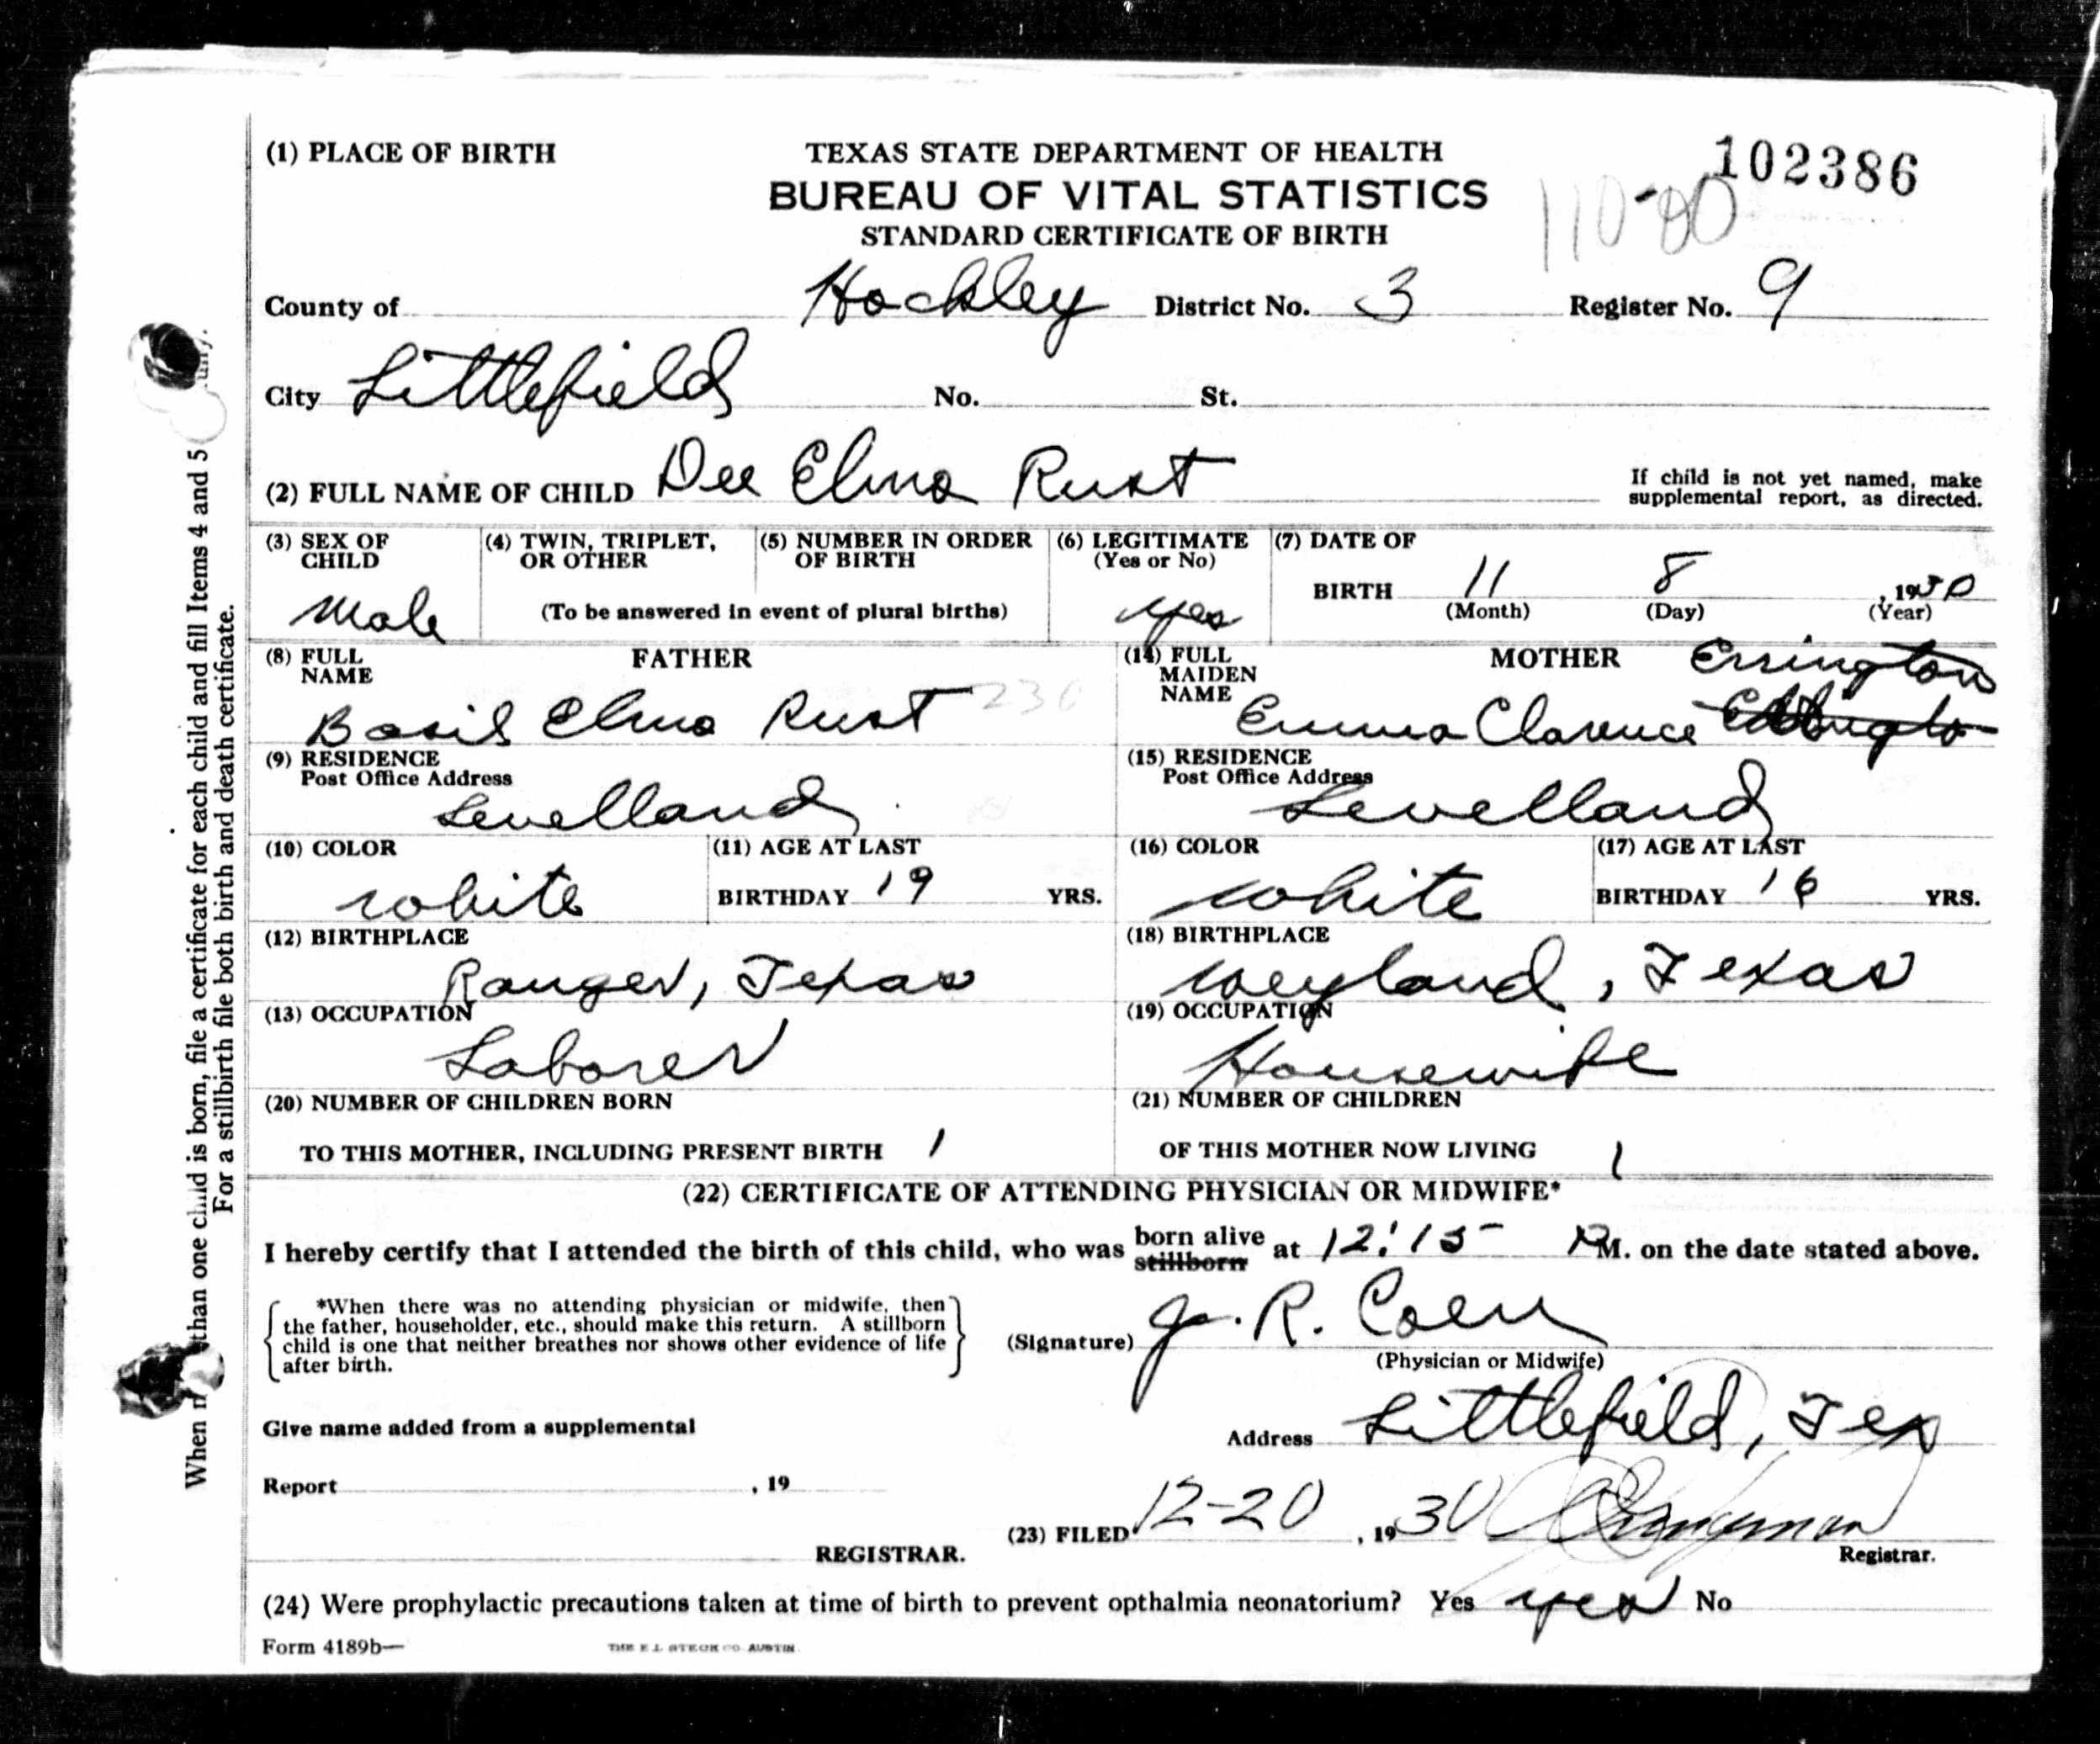 (1) PLACE OF BIRTH
TEXAS STATE DEPARTMENT OF HEALTH
102386
BUREAU OF VITAL STATISTICS
110-80
STANDARD CERTIFICATE OF BIRTH
County of Hockley District No. 3 Register No. 9
City Littlefield No. St.
(2) FULL NAME OF CHILD Dee Elmo Rust
If child is not yet named, make
supplemental report, as directed.
(3) SEX OF CHILD Male
(4) TWIN, TRIPLET, OR OTHER
(5) NUMBER IN ORDER OF BIRTH
(To be answered in event of plural births)
(6) LEGITIMATE (Yes or No) yes
(7) DATE OF
BIRTH 11 8, 1930
(Month) (Day) (Year)
(8) FULL NAME FATHER
Basil Elmo Rust 230
(14) FULL MAIDEN NAME MOTHER Errington
Emma Clarence
(9) RESIDENCE
Post Office Address
Levelland
(15) RESIDENCE
Post Office Address
Levelland
(10) COLOR white
(11) AGE AT LAST
BIRTHDAY 19 YRS.
(16) COLOR white
(17) AGE AT LAST
BIRTHDAY 16 YRS.
(12) BIRTHPLACE
Ranger, Texas
(18) BIRTHPLACE
Weyland, Texas
(13) OCCUPATION
Laborer
(19) OCCUPATION
Housewife
(20) NUMBER OF CHILDREN BORN
TO THIS MOTHER, INCLUDING PRESENT BIRTH 1
(21) NUMBER OF CHILDREN
OF THIS MOTHER NOW LIVING 1
(22) CERTIFICATE OF ATTENDING PHYSICIAN OR MIDWIFE*
I hereby certify that I attended the birth of this child, who was born alive stillborn at 12:15 P M. on the date stated above.
*When there was no attending physician or midwife, then
the father, householder, etc., should make this return. A stillborn
child is one that neither breathes nor shows other evidence of life
after birth.
(Signature) J. R. Coen
(Physician or Midwife)
Give name added from a supplemental
Address Littlefield, Tex
Report , 19
(23) FILED 12-20, 1930
REGISTRAR.
Registrar.
(24) Were prophylactic precautions taken at time of birth to prevent opthalmia neonatorium? Yes yes No
Form 4189b—
THE E.L. STECK CO. AUSTIN
When than one child is born, file a certificate for each child and fill Items 4 and 5
For a stillbirth file both birth and death certificate.